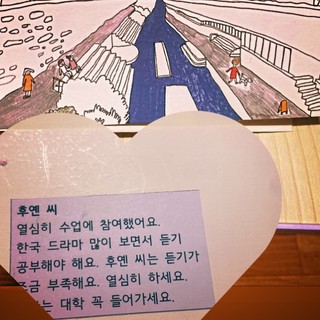 후옌 씨
열심히 수업에 참여했어요.
한국 드라마 많이 보면서 듣기
공부해야 해요. 후옌 씨는 듣기가
조금 부족해요. 열심히 하세요.
는 대학 꼭 들어가세요.